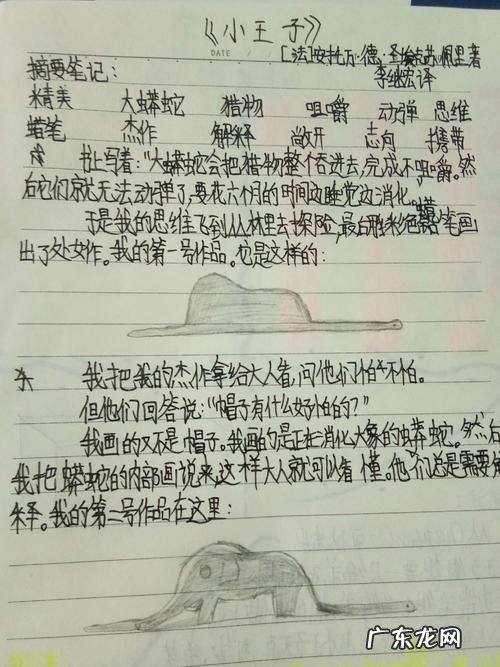 《小王子》
DATE
[法]安托万·德·圣埃克苏佩里著
李继宏译
摘要笔记:
精美 大蟒蛇 猎物 咀嚼 动弹 思维
蜡笔 杰作 解释 敞开 志向 携带
书上写着:“大蟒蛇会把猎物整个吞进去,完成不咀嚼。然
后它们就无法动弹了,要花六个月的时间边睡觉边消化。”
于是我的思维飞到丛林里去探险,最后用彩色蜡笔画
出了处女作。我的第一号作品。它是这样的:
我把我的杰作拿给大人看,问他们怕不怕。
但他们回答说:“帽子有什么好怕的?”
我画的又不是帽子。我画的是正在消化大象的蟒蛇。然后
我把蟒蛇的内部画出来,这样大人就可以看懂。他们总是需要解
释。我的第二号作品在这里:
广东龙网